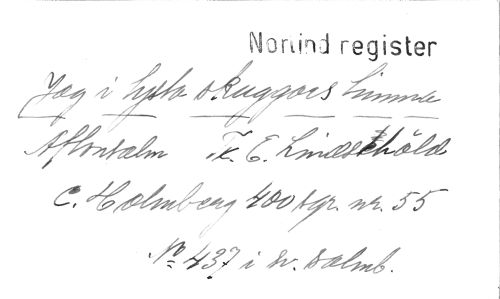 Norlind register
Jag i tysta skuggors timma
Aftonsalm T. E. Lindschöld
C. Holmberg 400 tgr. nr. 55
No 437 i sv. psalmb.